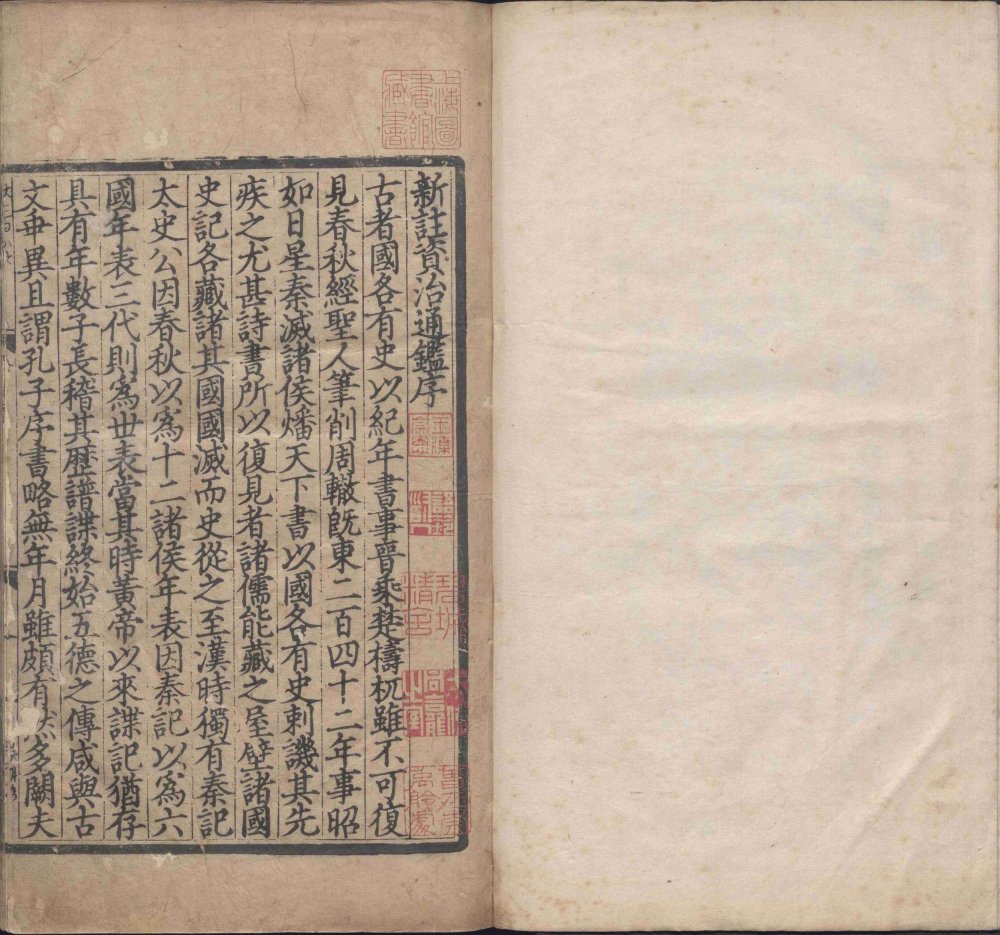 新註資治通鑑序
古者國各有史以紀年書事晉乘楚檮杌雖不可復
見春秋經聖人筆削周轍旣東二百四十二年事昭
如日星秦滅諸侯燔天下書以國各有史刺譏其先
疾之尤甚詩書所以復見者諸儒能藏之屋壁諸國
史記各藏諸其國國滅而史從之至漢時獨有秦記
太史公因春秋以爲十二諸侯年表因秦記以爲六
國年表三代則爲丗表當其時黃帝以來諜記猶存
具有年數子長稽其歷譜諜終始五德之傳咸與古
文乖異且謂孔子序書略無年月雖頗有然多闕夫
上海圖書館藏書